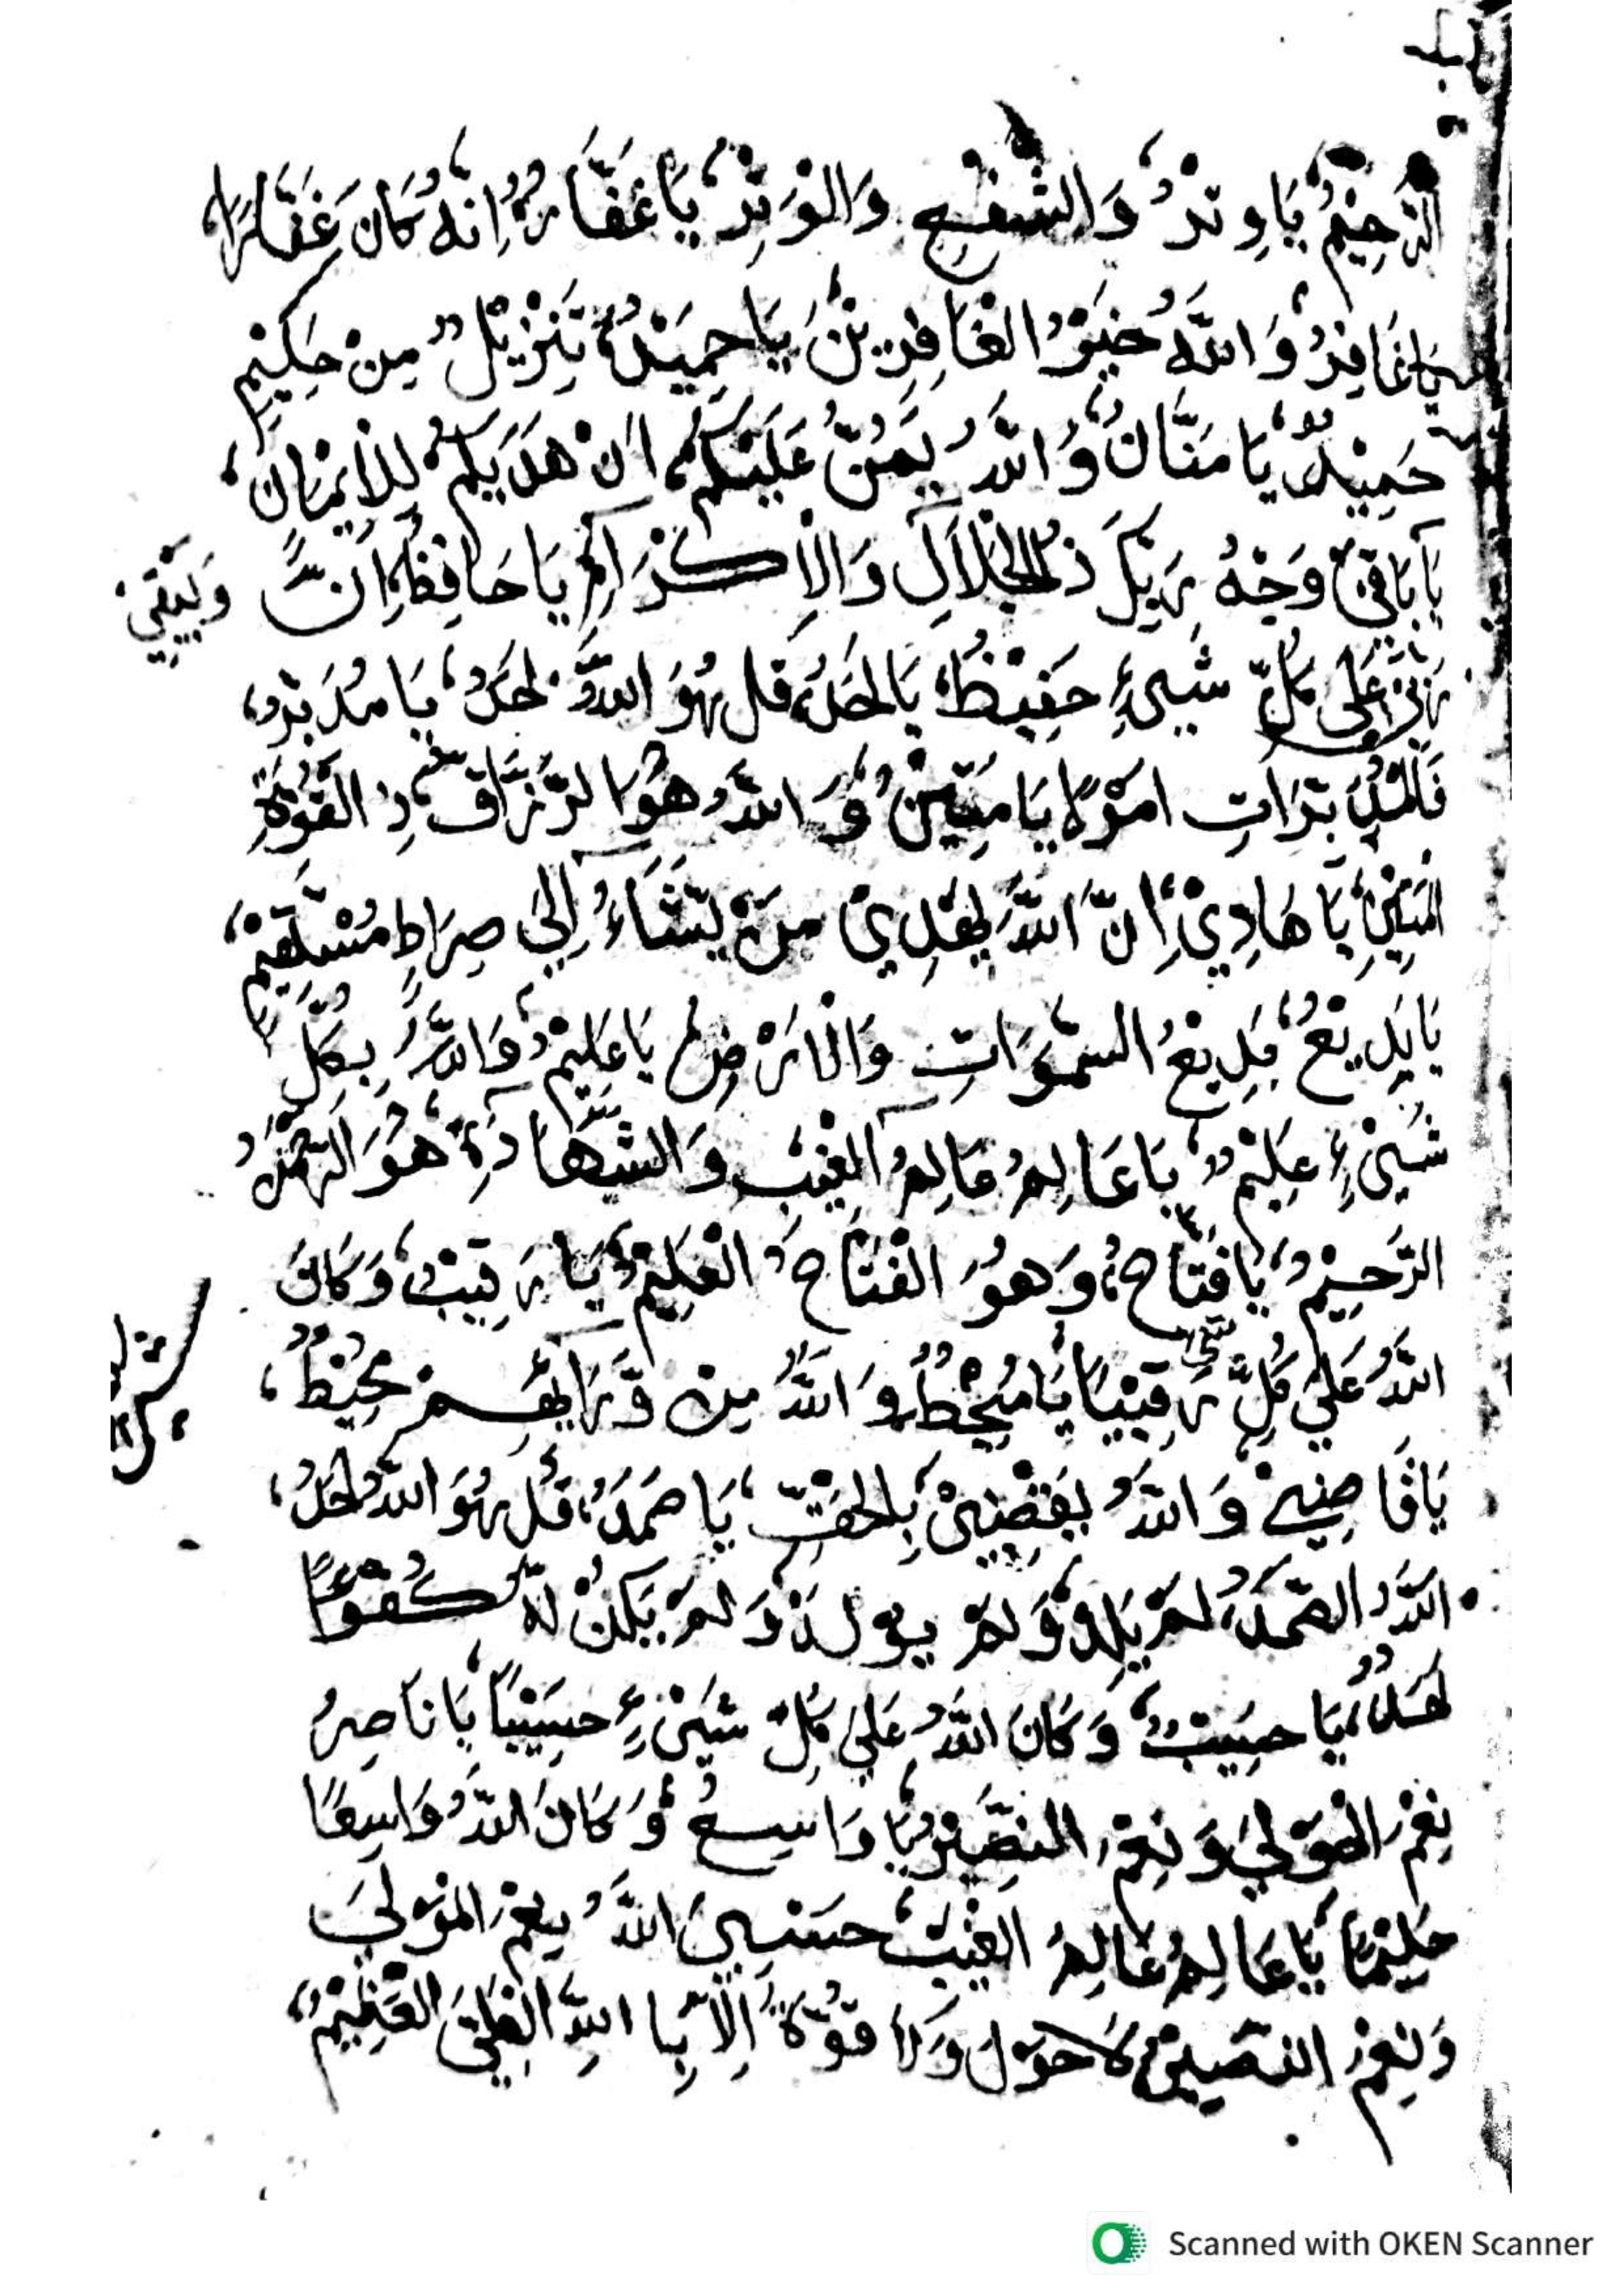 الرَّحِيْمُ يَا وِتْرُ وَالشَّفْعِ وَالْوَتْرِ يَا غَفَّارُ اِنَّهُ كَانَ غَفَّارًا
يَا غَافِرُ وَاللهُ خَيْرُ الْغَافِرِيْنَ يَا حَمِيْدُ تَنْزِيْلٌ مِنْ حَكِيْمٍ
حَمِيْدٍ يَا مَنَّانُ وَاللهُ يَمُنُّ عَلَيْكُمْ اَنْ هَدَيكُمْ لِلْاِيْمَانِ
يَا بَاقِيْ وَجْهُ رَبِّكَ ذُو الْجَلَالِ وَالْاِكْرَامِ يَا حَافِظُ اِنَّ
وَيَبْقَى
رَبِّيْ عَلَى كُلِّ شَيْءٍ حَفِيْظٌ يَا اَحَدُ قُلْ هُوَ اللهُ اَحَدٌ يَا مُدَبِّرُ
فَالْمُدَبِّرَاتِ اَمْرًا يَا مَتِيْنُ وَاللهُ هُوَ الرَّزَّاقُ ذُ الْقُوَّةِ
الْمَتِيْنِ يَا هَادِيْ اِنَّ اللهَ يَهْدِيْ مَنْ يَّشَاءُ اِلَى صِرَاطٍ مُسْتَقِيْمٍ
يَا بَدِيْعُ بَدِيْعُ السَّمٰوَاتِ وَالْاَرْضِ يَا عَلِيْمُ وَاللهُ بِكُلِّ
شَيْءٍ عَلِيْمٌ يَا عَالِمُ عَالِمُ الْغَيْبِ وَالشَّهَادَةِ هُوَ الرَّحْمٰنُ
الرَّحِيْمُ يَا فَتَّاحُ وَهُوَ الْفَتَّاحُ الْعَلِيْمُ يَا رَقِيْبُ وَكَانَ
اللهُ عَلَى كُلِّ شَيْءٍ رَقِيْبًا يَا مُحِيْطُ وَاللهُ مِنْ وَّرَائِهِمْ مُحِيْطٌ
يَا قَاضِيْ وَاللهُ يَقْضِيْ بِالْحَقِّ يَا صَمَدُ قُلْ هُوَ اللهُ اَحَدٌ
اَللهُ الصَّمَدُ لَمْ يَلِدْ وَلَمْ يُوْلَدْ وَلَمْ يَكُنْ لَهُ كُفُوًا
اَحَدٌ يَا حَسِيْبُ وَكَانَ اللهُ عَلَى كُلِّ شَيْءٍ حَسِيْبًا يَا نَاصِرُ
نِعْمَ الْمَوْلَى وَنِعْمَ النَّصِيْرُ يَا وَاسِعُ وَكَانَ اللهُ وَاسِعًا
حَكِيْمًا يَا عَالِمُ عَالِمُ الْغَيْبِ حَسْبِيَ اللهُ نِعْمَ الْمَوْلَى
وَنِعْمَ النَّصِيْرُ لَا حَوْلَ وَلَا قُوَّةَ اِلَّا بِا اللهِ الْعَلِيِّ الْعَظِيْمِ
Scanned with OKEN Scanner